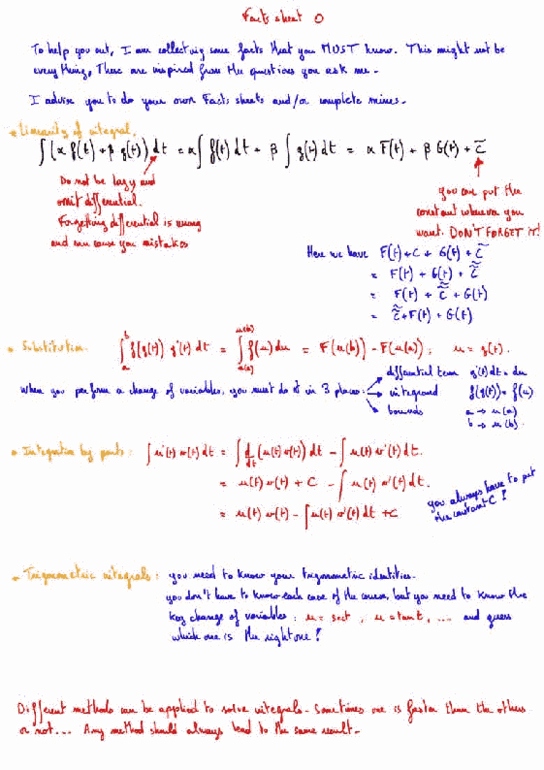 Facts sheet 0
To help you out, I am collecting some facts that you MUST know. This might not be
everything, These are inspired from the questions you ask me.
I advise you to do your own Facts sheets and/or complete mines.
• Linearity of integral.
∫(α f(t) + β g(t)) dt = α∫ f(t) dt + β ∫ g(t) dt = α F(t) + β G(t) + C̃
Do not be lazy and
omit differential.
Forgetting differential is wrong
and can cause you mistakes
you can put the
constant wherever you
want. DON'T FORGET IT!
Here we have F(t) + C + G(t) + C̃
= F(t) + G(t) + C̃̃
= F(t) + C̃̃ + G(t)
= C̃̃ + F(t) + G(t)
• Substitution. ∫_a^b f(g(t)) g'(t) dt = ∫_{u(a)}^{u(b)} f(u) du = F(u(b)) - F(u(a)); u = g(t).
When you perform a change of variables, you must do it in 3 places:
differential term g'(t) dt = du
integrand f(g(t)) = f(u)
bounds a → u(a)
b → u(b).
• Integration by parts: ∫ u'(t) v(t) dt = ∫ d/dt (u(t) v(t)) dt - ∫ u(t) v'(t) dt.
= u(t) v(t) + C - ∫ u(t) v'(t) dt.
= u(t) v(t) - ∫ u(t) v'(t) dt + C
you always have to put
the constant C!
• Trigonometric integrals: you need to know your trigonometric identities.
you don't have to know each case of the course, but you need to know the
key change of variables: u = sec t, u = tan t, ... and guess
which one is the right one!
Different methods can be applied to solve integrals. Sometimes one is faster than the others
or not... Any method should always lead to the same result.